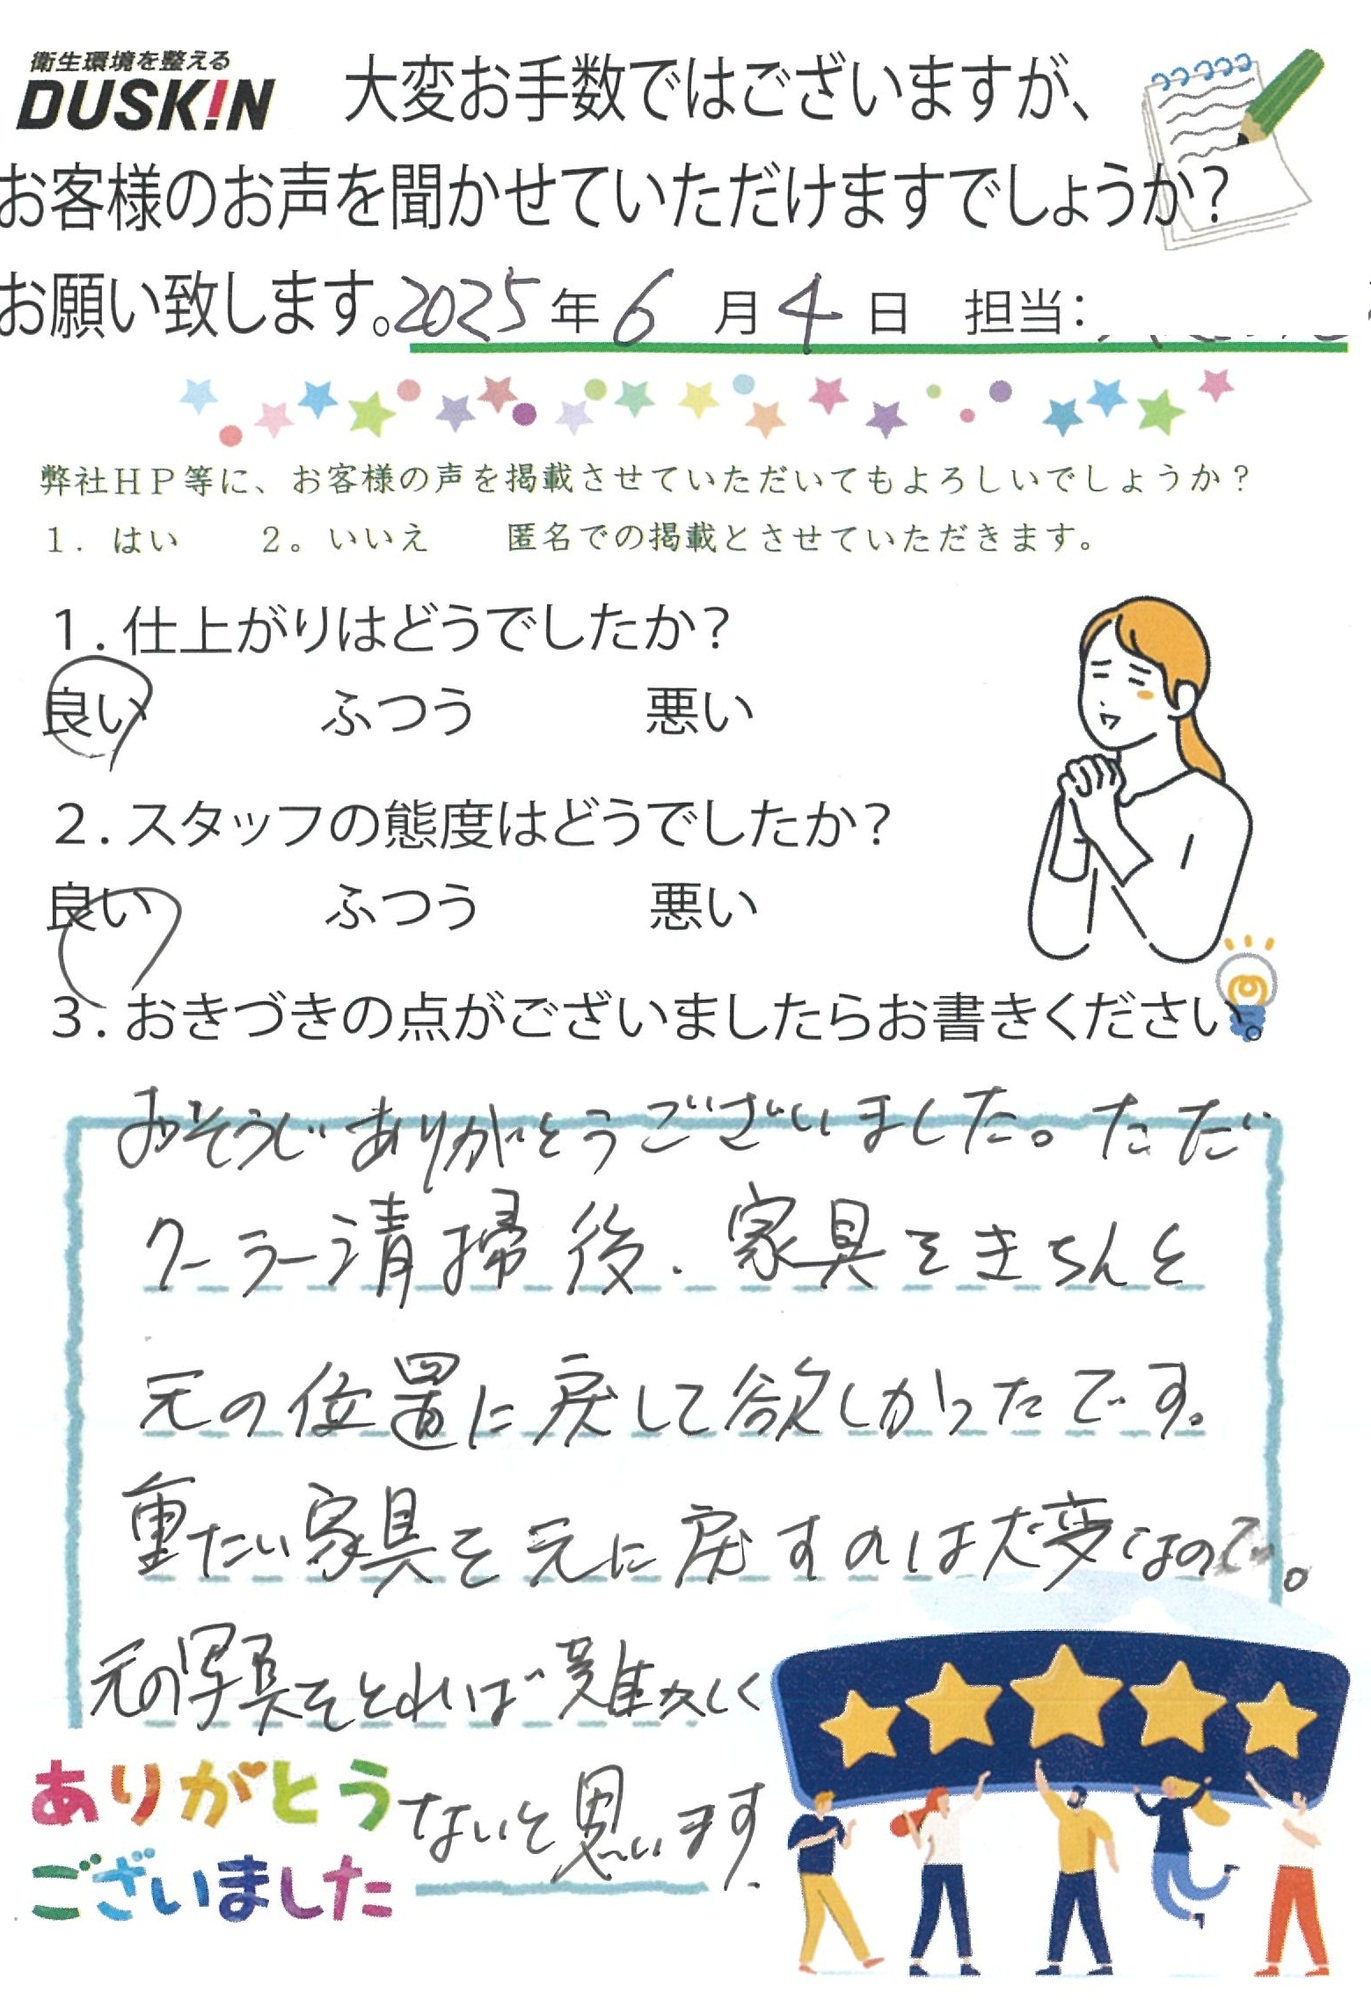 衛生環境を整える
DUSKIN
大変お手数ではございますが、
お客様のお声を聞かせていただけますでしょうか?
お願い致します。2025年6月4日 担当:
弊社HP等に、お客様の声を掲載させていただいてもよろしいでしょうか?
1. はい 2。いいえ 匿名での掲載とさせていただきます。
1.仕上がりはどうでしたか?
良い ふつう 悪い
2.スタッフの態度はどうでしたか?
良い ふつう 悪い
3.おきづきの点がございましたらお書きください。
おそうじありがとうございました。ただ
クーラー清掃後、家具をきちんと
元の位置に戻して欲しかったです。
重たい家具を元に戻すのは大変なので。
元の写真をとれば難しく
ないと思います
ありがとう
ございました